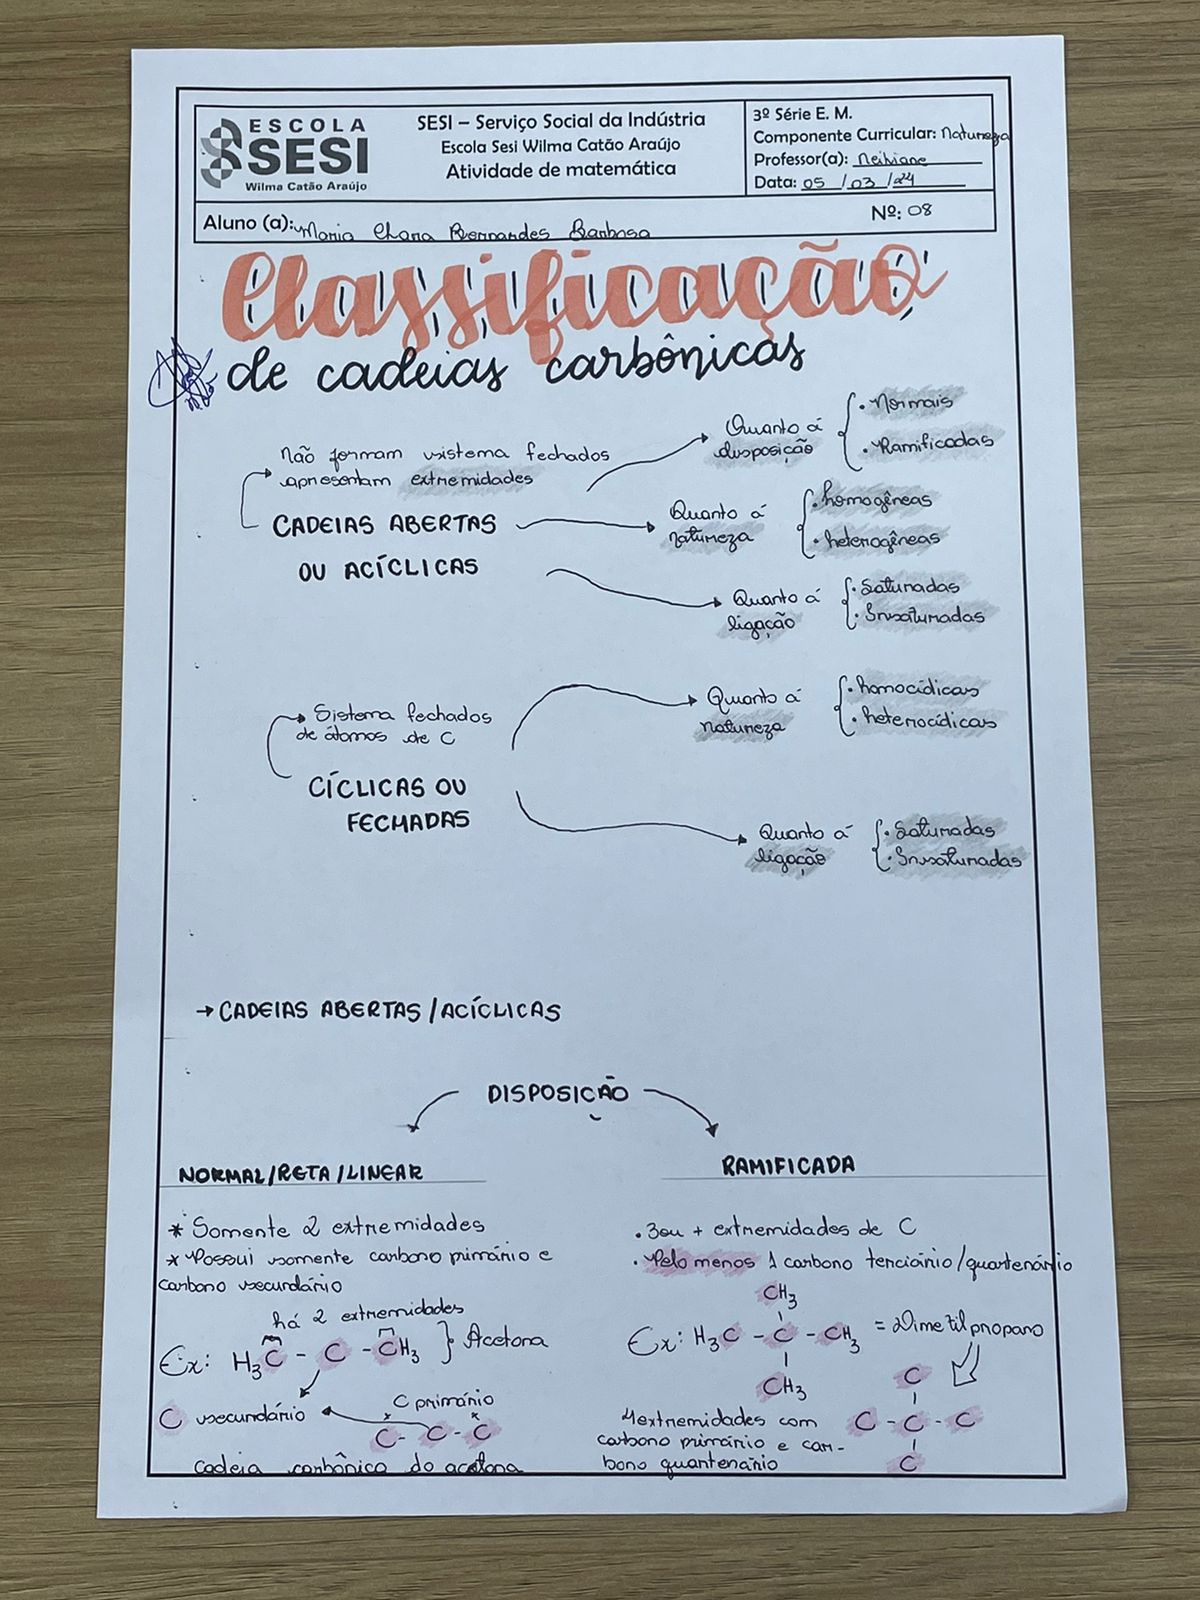 ESCOLA
SESI
Wilma Catão Araújo
SESI – Serviço Social da Indústria
Escola Sesi Wilma Catão Araújo
Atividade de matemática
3º Série E. M.
Componente Curricular: Natureza
Professor(a): Neihiane
Data: 05 /03 /24
Aluno (a): Maria Clara Bernandes Barbosa
Nº: 08
Classificação
de cadeias carbônicas
Não formam sistema fechados
apresentam extremidades
CADEIAS ABERTAS
OU ACÍCLICAS
Quanto á
disposição
• Normais
• Ramificadas
Quanto á
natureza
• homogêneas
• heterogêneas
Quanto á
ligação
• Saturadas
• Insaturadas
Sistema fechados
de átomos de C
CÍCLICAS OU
FECHADAS
Quanto á
natureza
• homocíclicas
• heterocíclicas
Quanto á
ligação
• Saturadas
• Insaturadas
→ CADEIAS ABERTAS/ACÍCLICAS
DISPOSIÇÃO
NORMAL/RETA/LINEAR
* Somente 2 extremidades
* Possui somente carbono primário e
carbono secundário
há 2 extremidades
Ex: H3C - C - CH3 } Acetona
C secundário
C primário
C - C - C
cadeia carbônica do acetona
RAMIFICADA
• 3 ou + extremidades de C
• Pelo menos 1 carbono terciário/quartenário
CH3
Ex: H3C - C - CH3 = Dimetilpropano
CH3
C
C - C - C
C
4 extremidades com
carbono primário e car-
bono quartenário